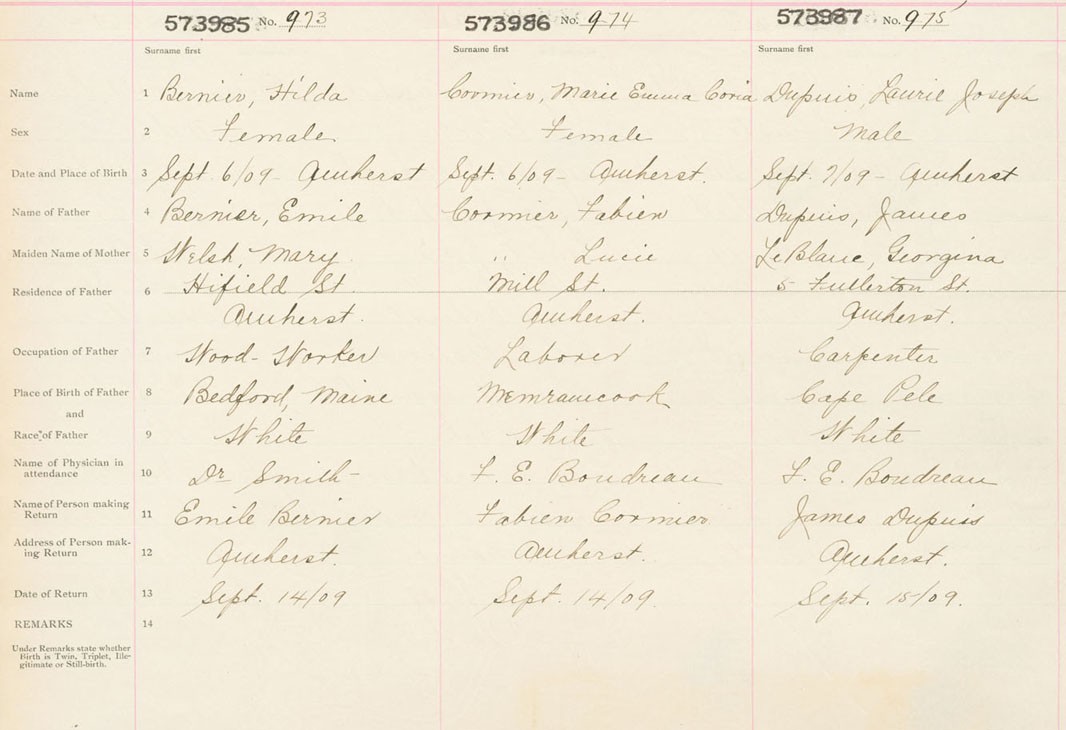 573985 No. 973 573986 No. 974 573987 No. 975
Surname first Surname first Surname first
Name 1 Bernier, Hilda Cormier, Marie Emma Coria Dupuis, Laurie Joseph
Sex 2 Female. Female Male
Date and Place of Birth 3 Sept. 6/09 - Amherst Sept. 6/09 - Amherst. Sept. 7/09 - Amherst
Name of Father 4 Bernier, Emile Cormier, Fabien Dupuis, James
Maiden Name of Mother 5 Welsh, Mary. " Lucie LeBlanc, Georgina
Residence of Father 6 Hifield St. Mill St. 5 Fullerton St.
Amherst. Amherst. Amherst.
Occupation of Father 7 Wood-Worker Laborer Carpenter
Place of Birth of Father 8 Bedford, Maine Memramcook Cape Pele
and
Race of Father 9 White White White
Name of Physician in
attendance 10 Dr Smith F. E. Boudreau F. E. Boudreau
Name of Person making
Return 11 Emile Bernier Fabien Cormier James Dupuis
Address of Person mak-
ing Return 12 Amherst. Amherst. Amherst.
Date of Return 13 Sept. 14/09 Sept. 14/09. Sept. 15/09.
REMARKS 14
Under Remarks state whether
Birth is Twin, Triplet, Ille-
gitimate or Still-birth.